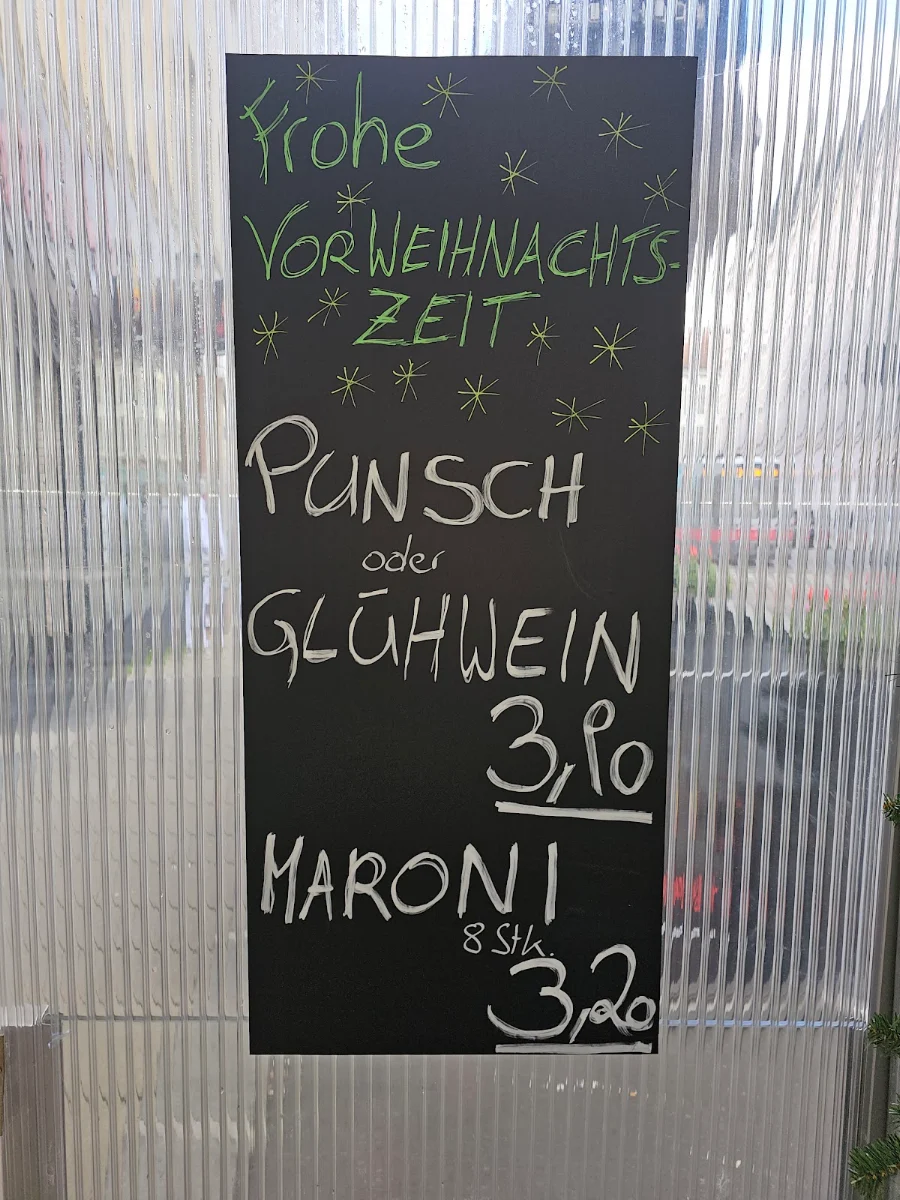 Frohe
VORWEIHNACHTS-
ZEIT
PUNSCH
oder
GLÜHWEIN
3,80
MARONI
8 Stk.
3,20